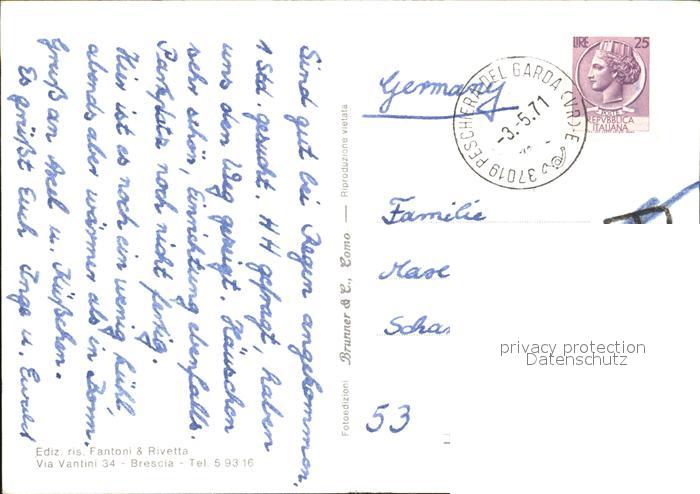 Sind gut bei Regen angekommen.
1 Std. gesucht. HH gefragt, haben
uns den Weg gezeigt. Häuschen
sehr schön, Einrichtung ebenfalls.
Parkplatz noch nicht fertig.
Hier ist es noch ein wenig kühl,
abends aber wärmer als in Bonn.
Gruß an Axel u. Küßchen.
Es grüßt Euch Inge u. Ewald
Ediz. ris. Fantoni & Rivetta
Via Vantini 34 - Brescia - Tel. 5 93 16
Fotoedizioni Brunner & C., Como — Riproduzione vietata
Germany
PESCHIERA DEL GARDA (VR) E
-3.-5.71
37019
LIRE 25
REPVBBLICA
ITALIANA
Familie
53
privacy protection
Datenschutz